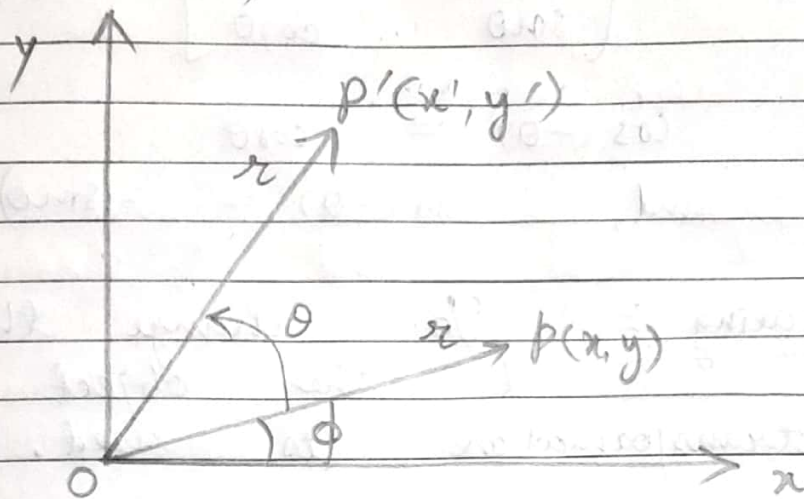 y
P'(x', y')
r
θ
r
P(x, y)
φ
O
x